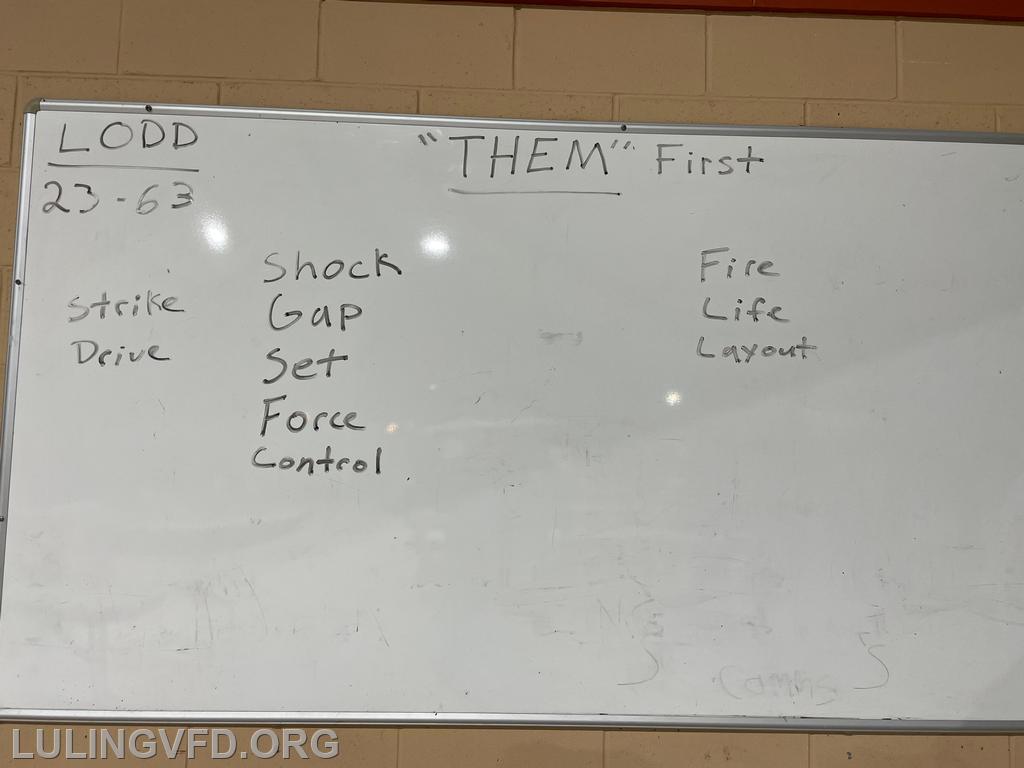 LODD
23-63
"THEM" First
Strike
Drive
Shock
Gap
Set
Force
Control
Fire
Life
Layout
Comms
LULINGVFD.ORG